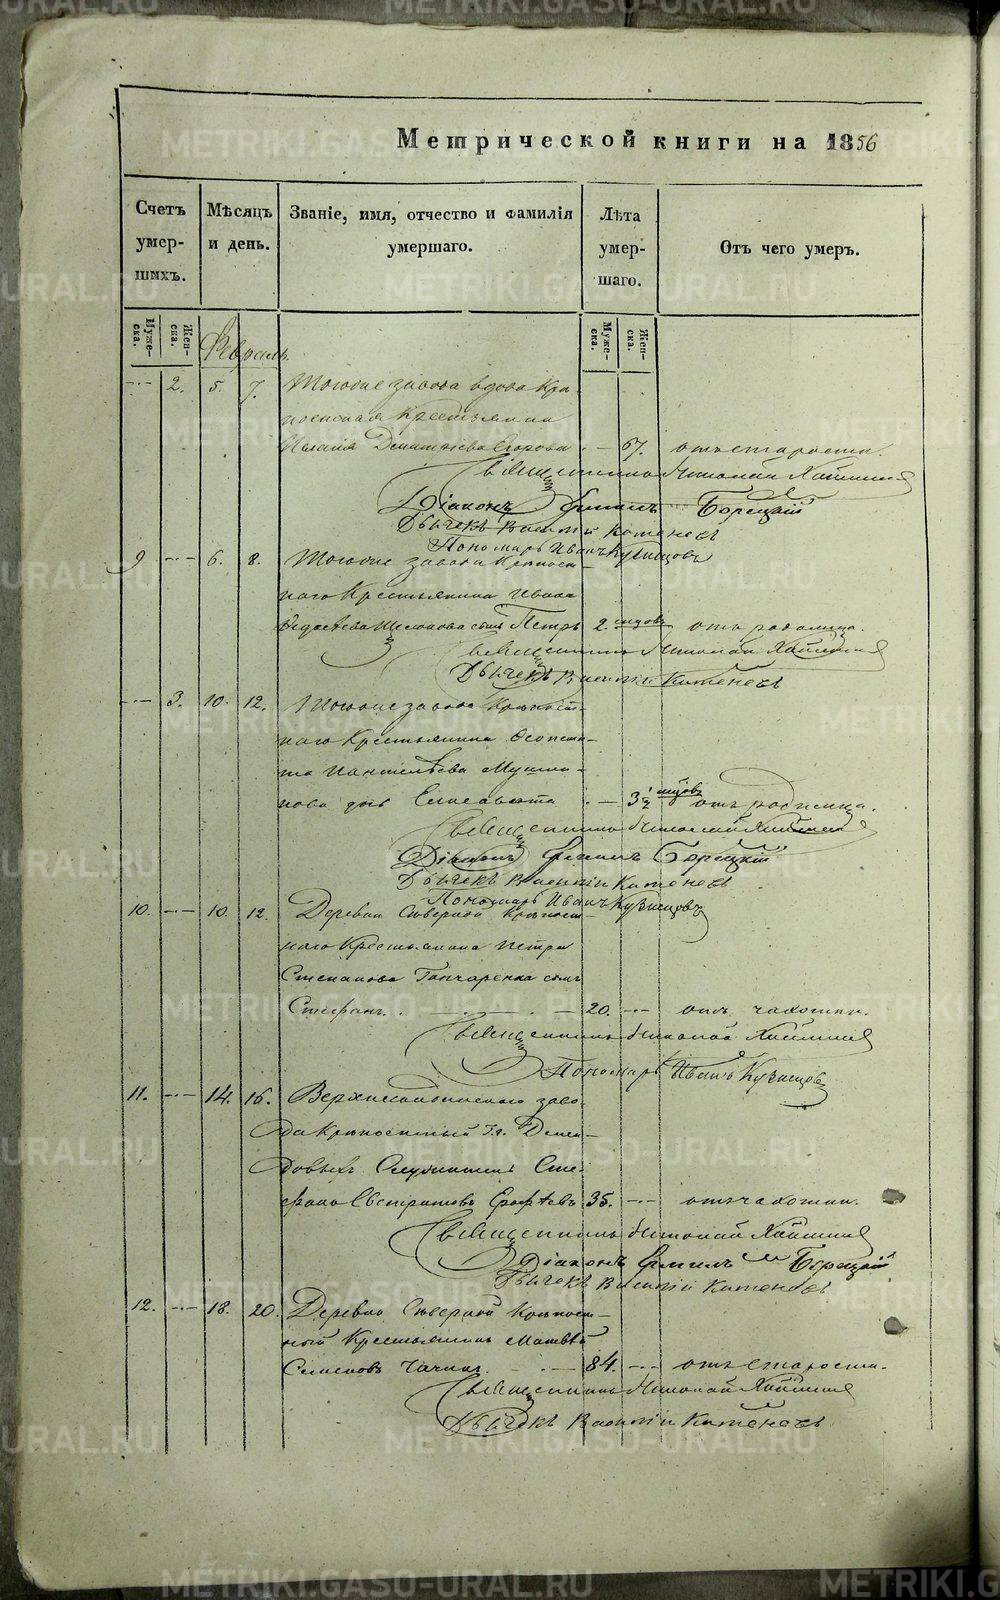 Метрической книги на 1856
Счетъ умершихъ.
Мѣсяцъ и день.
Званіе, имя, отчество и фамилія умершаго.
Лѣта умершаго.
Отъ чего умеръ.
Мужеска.
Женска.
Мужеска.
Женска.
Февраль
2. 5. 7. Тогоже завода вдова Крѣ-
постная Крестьянка
Дмитріева Егорова 67. отъ старости.
Священникъ Николай
Діаконъ Борецкій
Дьячекъ Василій Китеневъ
Пономарь Иванъ Кузнецовъ
9 6. 8. Тогоже завода Крѣпост-
наго Крестьянина Ивана
сынъ Петръ 2. отъ родимца.
Священникъ Николай
Дьячекъ Василій Китеневъ
3. 10. 12. Тогоже завода Крѣпост-
наго Крестьянина
Пантелѣева
дочь Елисавета 3½ отъ родимца.
Священникъ Николай
Діаконъ Борецкій
Дьячекъ Василій Китеневъ
Пономарь Иванъ Кузнецовъ
10. 10. 12. Деревни Сѣверной Крѣпост-
наго Крестьянина Петра
Степанова Гончаренка сынъ
Стефанъ. 20. отъ чахотки.
Священникъ Николай
Пономарь Иванъ Кузнецовъ
11. 14. 16. заво-
да Крѣпостный Гг. Деми-
довыхъ Служитель Сте-
фанъ Евстратовъ Ерофѣевъ 35. отъ чахотки.
Священникъ Николай
Діаконъ Борецкій
Дьячекъ Василій Китеневъ
12. 18. 20. Деревни Сѣверной Крѣпост-
ной Крестьянинъ Матвѣй
Семеновъ 84. отъ старости.
Священникъ Николай
Дьячекъ Василій Китеневъ
METRIKI.GASO-URAL.RU